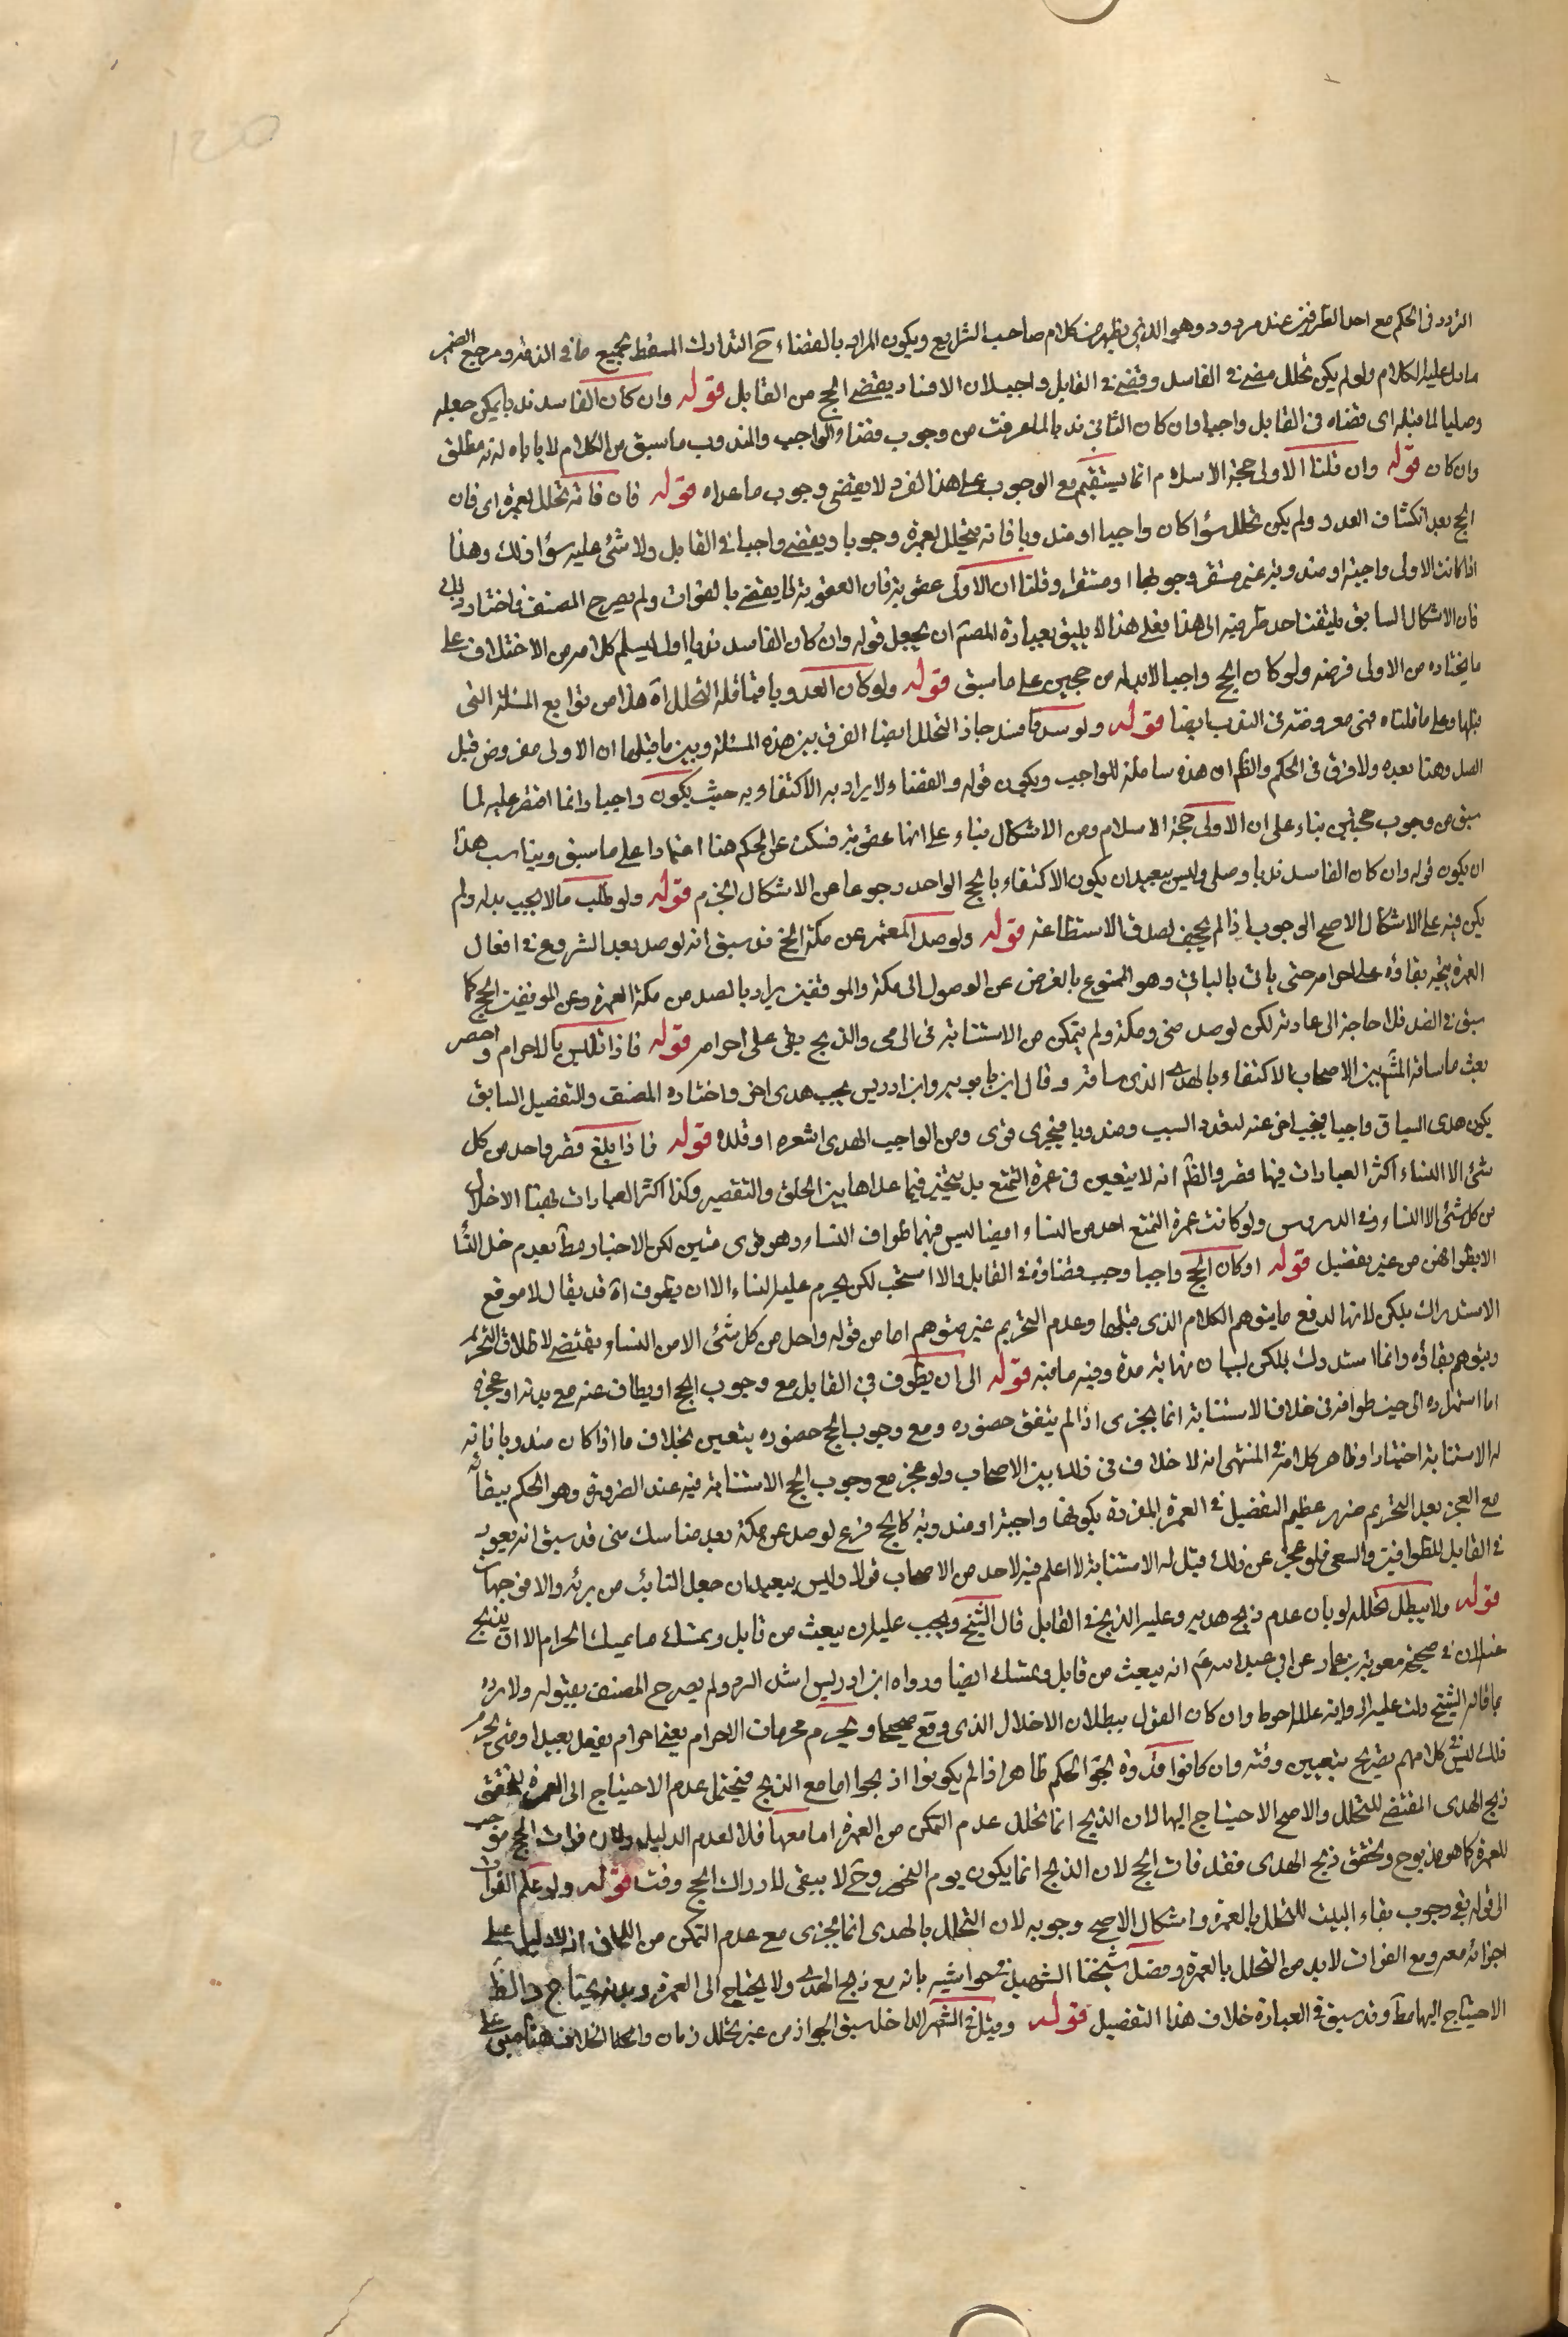 التردد في الحكم مع احد الطرفين عند مردود وهو الذي يظهر من كلام صاحب الشرايع ويكون المراد بالقضاء ح التدارك المسقط لجميع ما في الذمة ومرجع الضمير
ما دل عليه الكلام ولو لم يكن تحلل مضى في الفاسد وقضى في القابل واجبا لان الافساد يقتضي الحج من القابل قوله وان كان الفاسد ندبا يمكن جعله
وصليا لما قبله اى قضاه في القابل واجبا وان كان الثاني ندبا لما عرفت من وجوب قضاء الواجب والمندوب ما سبق من الكلام لا ياباه لانه مطلق
وان كان قوله وان قلنا الاولى حجة الاسلام انما يستقيم مع الوجوب على هذا الفرد لا يقتضى وجوب ما عداه قوله فان فاته تحلل بعمرة اى فان
الحج بعد انكشاف العدو ولم يكن تحلل سواء كان واجبا او مندوبا فانه يتحلل بعمرة وجوبا ويقضى واجبا في القابل ولا شئ عليه سوا ذلك وهذا
اذا كانت الاولى واجبة او مندوبة غير مستقر وجوبها او مستقرا وقلنا ان الاولى عقوبة فان العقوبة لا يقضى بالفوات ولم يصرح المصنف باختيار
فان الاشكال السابق ملتفت احد طرفيه الى هذا فعلى هذا لا يليق بعبارة المصنف ان يجعل قوله وان كان الفاسد ندبا اول ليسلم كلامه من الاختلاف على
ما يختاره من الاولى فرضه ولو كان الحج واجبا لابد له من حجين على ما سبق قوله ولو كان العدو باقيا فله التحلل اه هذا من توابع المسئلة التى
قبلها وعلى ما قلناه فهى معروضة في الندب ايضا قوله ولو صد فافسد جاز التحلل ايضا الفرق بين هذه المسئلة وبين ما قبلها ان الاولى مفروض قبل
الصد وهنا بعده ولا فرق في الحكم والظ ان هذه شاملة للواجب ويكون قوله والقضاء ولا يراد به الاكتفاء به حيث يكون واجبا وانما اقتصر عليه لما
سبق من وجوب حجتين بناء على ان الاولى حجة الاسلام ومن الاشكال بناء على انها عقوبة فسكت عن الحكم هنا اعتمادا على ما سبق ويناسب هذا
ان يكون قوله وان كان الفاسد ندبا وصلى وليس ببعيد ان يكون الاكتفاء بالحج الواحد رجوعا عن الاشكال الى الجزم قوله ولو طلب مالا لم يجب بذله ولم
يكن فيه على الاشكال الاصح الوجوب اذا لم يجحف لصدق الاستطاعة قوله ولو صد المعتمر عن مكة الخ قد سبق انه لو صد بعد الشروع في افعال
العمرة يتجه بقاؤه على احرامه حتى يات بالباقي وهو الممنوع بالغرض عن الوصول الى مكة والموقفين يراد بالصد من مكة العمرة وعن الموقفين الحج كما
سبق في الصد فلا حاجة الى عادته لكن لو صد عن منى ومكة ولم يتمكن من الاستنابة في الرمى والذبح بقى على احرامه قوله فاذا تلبس بالاحرام واحصر
بعث ما ساقه المشهور بين الاصحاب الاكتفاء بالهدى الذى ساقه وقال ابن بابويه وابن ادريس يجب هدى اخر واختاره المصنف والتفصيل السابق
يكون هدى السياق واجبا فيجب اخر عنه لتعدد السبب ومندوبا فيجزى قوى ومن الواجب الهدى اشعره او قلده قوله فاذا بلغ قصر واحل من كل
شئ الا النساء اكثر العبارات فيها قصر والظ انه لا يتعين في عمرة التمتع بل يتخير فيما عداها بين الحلق والتقصير وكذا اكثر العبارات فيها الاحلال
من كل شئ الا النساء وفي الدروس ولو كانت عمرة التمتع احل من النساء ايضا اذ ليس فيها طواف النساء وهو قوى متين لكن الاخبار مط بعدم حل النسا
الا بطوافهن من غير تفصيل قوله ولو كان الحج واجبا وجب قضاؤه في القابل والا استحب لكن يحرم عليه النساء الا ان يطوف اه قد يقال لا موقع
الاستدراك بلكن لانها لدفع ما يتوهم الكلام الذى قبلها وعدم التحريم غير متوهم اما من قوله واحل من كل شئ الا من النساء ويقتضى لا طلاق التحريم
ويتوهم بقاؤه وانما استدرك بلكن لبيان نهاية مدة وفيه ما فيه قوله الى ان يطوف في القابل مع وجوب الحج او يطاف عنه مع ندبه او عجزه
اما استمراره الى حين طوافه في خلاف الاستنابة انما يجزى اذا لم يتفق حضوره ومع وجوب الحج حضوره يتعين بخلاف ما اذا كان مندوبا فانه
له الاستنابة اختيارا وظاهر كلامه في المنتهى انه لا خلاف في ذلك بين الاصحاب ولو عجز مع وجوب الحج الاستنابة فيه عند الضرورة وهو الحكم ببقائه
مع العجز بعد التحريم ضرر عظيم التفصيل في العمرة المفردة بكونها واجبة او مندوبة كالحج فرع لو صد عن مكة بعد مناسك منى قد سبق انه يعود
في القابل للطوافين والسعى فلو عجز عن ذلك قيل له الاستنابة لا اعلم فيه لاحد من الاصحاب قولا وليس ببعيد ان جعل النائب من
قوله ولا يبطل تحلله لو بان عدم ذبح هديه وعليه الذبح في القابل قال الشيخ ويجب عليه ان يبعث من قابل ويمسك مما يمسك المحرم الا ان يذبح
عنه لان في صحيحة معوية بن عمار عن ابي عبد الله ع انه يبعث من قابل ويمسك ايضا ورواه ابن ادريس اشد الرد ولم يصرح المصنف بقبوله ولا رده
بما قاله الشيخ دلت عليه الرواية عمله احوط وان كان القول ببطلان الاحلال الذى وقع صحيحا ويحرم محرمات الاحرام بغير احرام بفعل بعيدا ومتى يحرم
ذلك ليس في كلامهم تصريح بتعيين وقته وان كانوا قدروه لحق الحكم ظاهرا اذا لم يكونوا اذبحوا اما مع الذبح فيحتمل عدم الاحتياج الى العمرة لتحقق
ذبح الهدى المقتضى للتحلل والاصح الاحتياج اليها لان الذبح انما تحلل عدم التمكن من العمرة اما معها فلا لعدم الدليل ولان فوات الحج موجب
للعمرة كما هو مذبوح وتحقق ذبح الهدى فقد فات الحج لان الذبح انما يكون يوم النحر وح لا يبقى لادراك الحج وقت قوله ولو علم الفوات
الى قوله ففى وجوب لقاء البيت للتحلل بالعمرة واشكال الاصح وجوبه لان التحلل بالهدى انما يجزى مع عدم التمكن من اللقاء اذ لا دليل على
اجزائه معه ومع الفوات لابد من التحلل بالعمرة وفصل شيخنا الشهيد في حواشيه بانه مع ذبح الهدى ولا يحتاج الى العمرة وبدونه يحتاج والظ
الاحتياج اليها مط وقد سبق في العبارة خلاف هذا التفصيل قوله وقيل في الشهر الداخل سبق الجواز من غير تخلل زمان وانما الخلاف هنا مبنى على